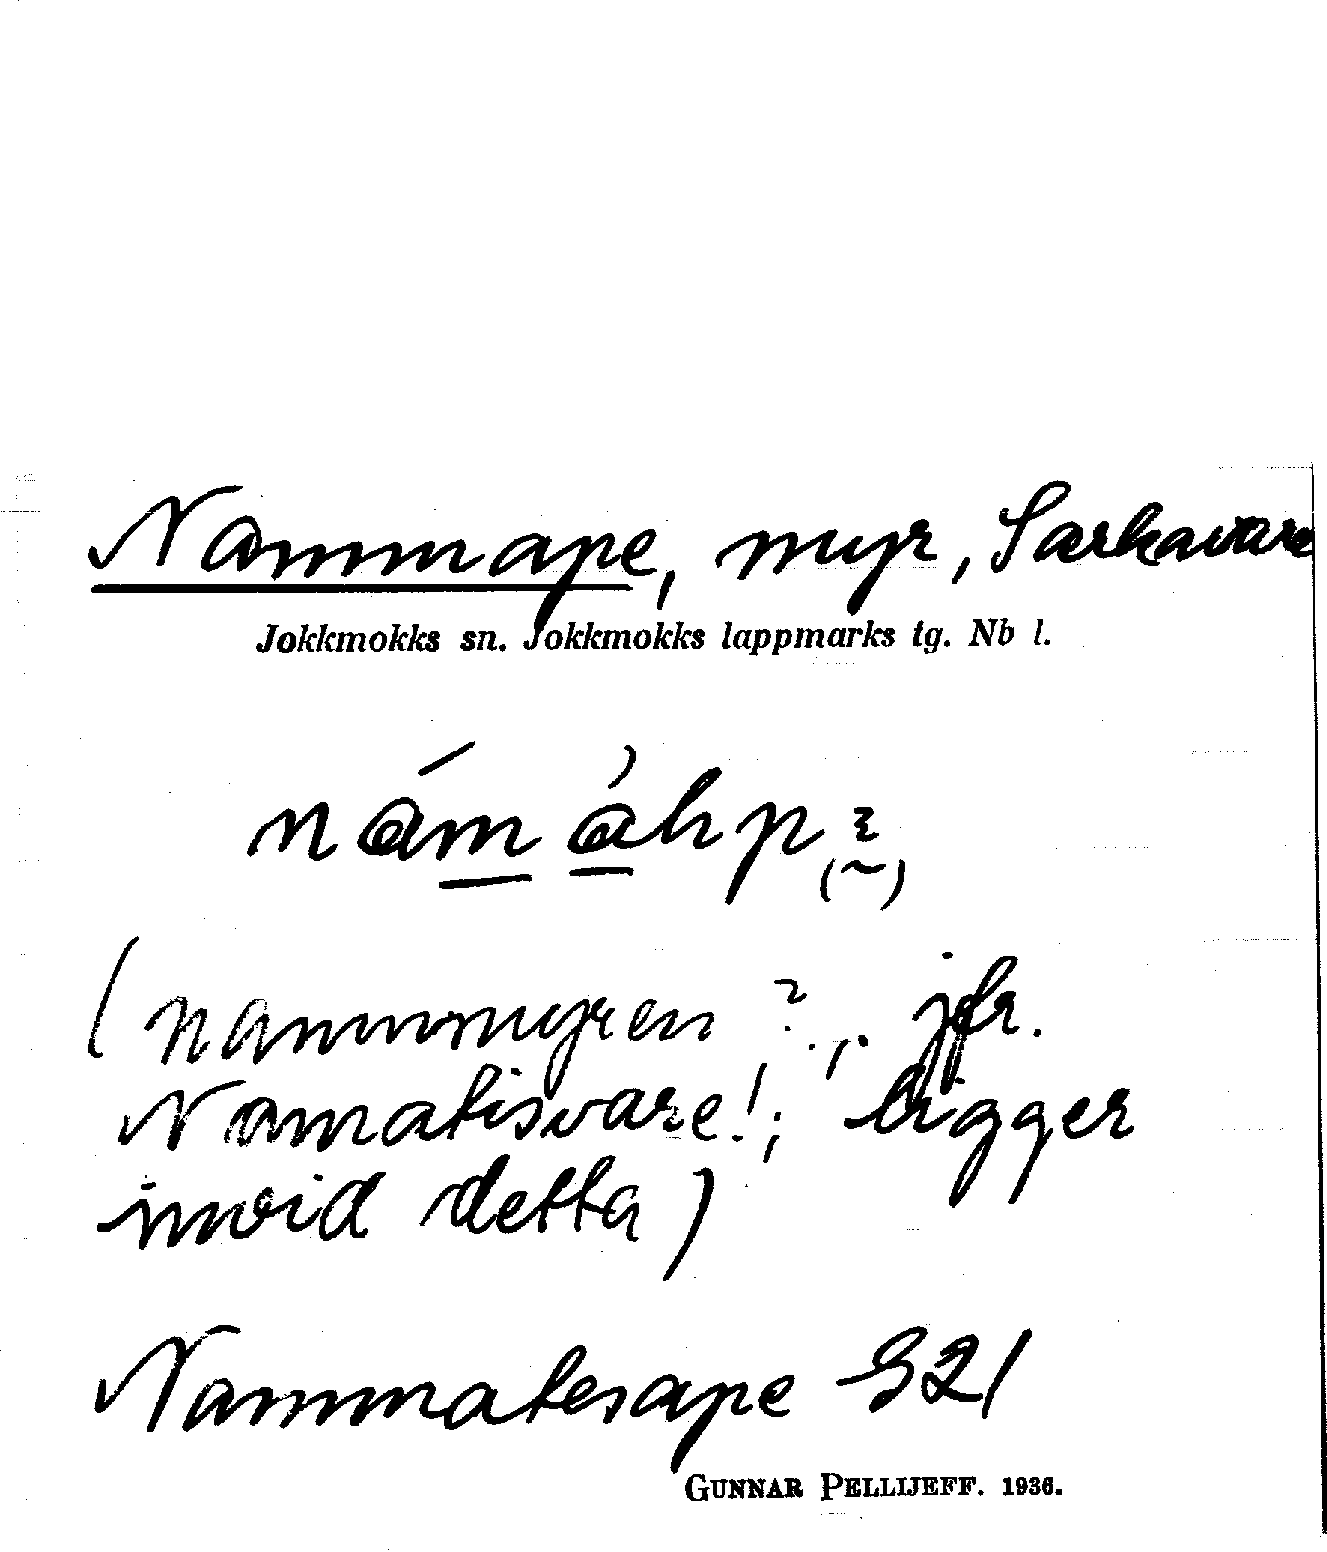 Nammape, myr, Sarkavare
Jokkmokks sn. Jokkmokks lappmarks tg. Nb l.
námáhp
(nammmyren ?; jfr.
Namatisvare!; ligger
invid detta)
Nammatesape S21
GUNNAR PELLIJEFF. 1936.